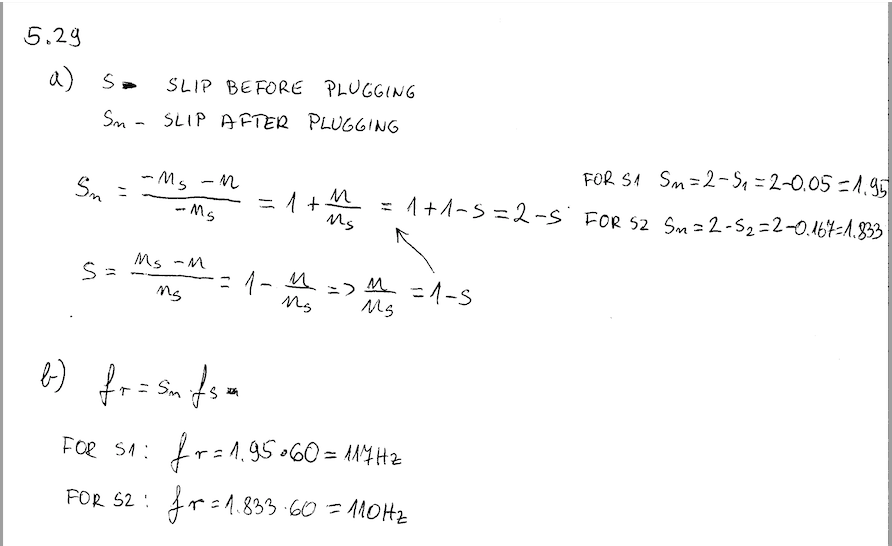 5.29
a) S - SLIP BEFORE PLUGGING
Sn - SLIP AFTER PLUGGING
Sn = (-ns - n)/(-ns) = 1 + n/ns = 1+1-s = 2-s
FOR S1 Sn = 2-S1 = 2-0.05 = 1.95
FOR S2 Sn = 2-S2 = 2-0.167 = 1.833
S = (ns - n)/ns = 1 - n/ns => n/ns = 1-s
b) fr = sn·fs
FOR S1: fr = 1.95·60 = 117Hz
FOR S2: fr = 1.833·60 = 110Hz